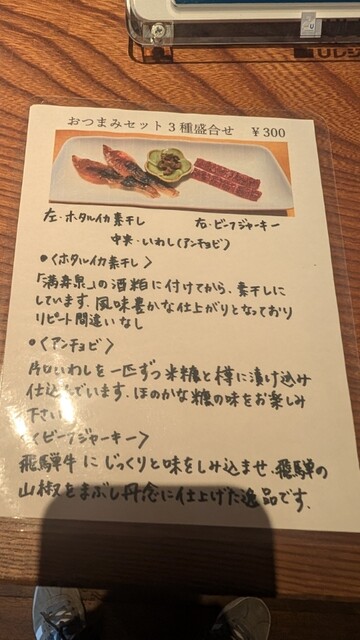 おつまみセット3種盛合せ ¥300
左・ホタルイカ素干し 右・ビーフジャーキー
中央・いわし(アンチョビ)
●〈ホタルイカ素干し〉
「満寿泉」の酒粕に付けてから、素干しに
しています。風味豊かな仕上がりとなっており
リピート間違いなし
●〈アンチョビ〉
片口いわしを一匹ずつ米糠と樽に漬け込み
仕込んでいます。ほのかな糠の味をお楽しみ
下さい
〈ビーフジャーキー〉
飛騨牛にじっくりと味をしみ込ませ、飛騨の
山椒をまぶし丹念に仕上げた逸品です。